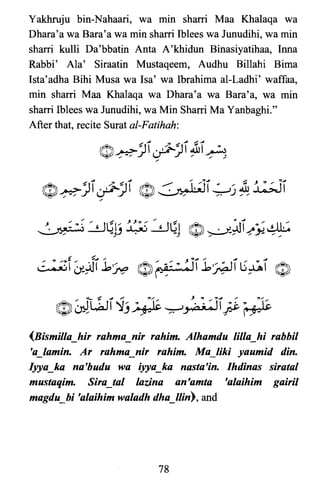 Yakhruju bin-Nahaari, wa min sharri Maa Khalaqa wa
Dhara'a wa Bara'a wa min sharri Iblees wa Junudihi, wa min
sharri kulli Da'bbatin Anta A'khidun Binasiyatihaa, Inna
Rabbi' Ala' Siraatin Mustaqeem, Audhu Billahi Bima
Ista'adha Bihi Musa wa Isa' wa Ibrahima al-Ladhi' waffaa,
min sharri Maa Khalaqa wa Dhara'a wa Bara'a, wa min
sharri Iblees wa Junudihi, wa Min Sharri Ma Yanbaghi."
After that, recite Surat al-Fatihah:
بِسْمِ ٱللَّهِ ٱلرَّحْمَٰنِ ٱلرَّحِيمِ ﴿١﴾
ٱلْحَمْدُ لِلَّهِ رَبِّ ٱلْعَٰلَمِينَ ﴿٢﴾ ٱلرَّحْمَٰنِ ٱلرَّحِيمِ ﴿٣﴾
مَٰلِكِ يَوْمِ ٱلدِّينِ ﴿٤﴾ إِيَّاكَ نَعْبُدُ وَإِيَّاكَ نَسْتَعِينُ
﴿٥﴾ ٱهْدِنَا ٱلصِّرَٰطَ ٱلْمُسْتَقِيمَ ﴿٦﴾ صِرَٰطَ ٱلَّذِينَ أَنْعَمْتَ
عَلَيْهِمْ غَيْرِ ٱلْمَغْضُوبِ عَلَيْهِمْ وَلَا ٱلضَّآلِّينَ ﴿٧﴾
(Bismilla_hir rahma_nir rahim. Alhamdu lilla_hi rabbil
'a_lamin. Ar rahma_nir rahim. Ma_liki yaumid din.
Iyya_ka na'budu wa iyya_ka nasta'in. Ihdinas siratal
mustaqim. Sira_tal lazina an'amta 'alaihim gairil
magdu_bi 'alaihim waladh dha_llin), and
78